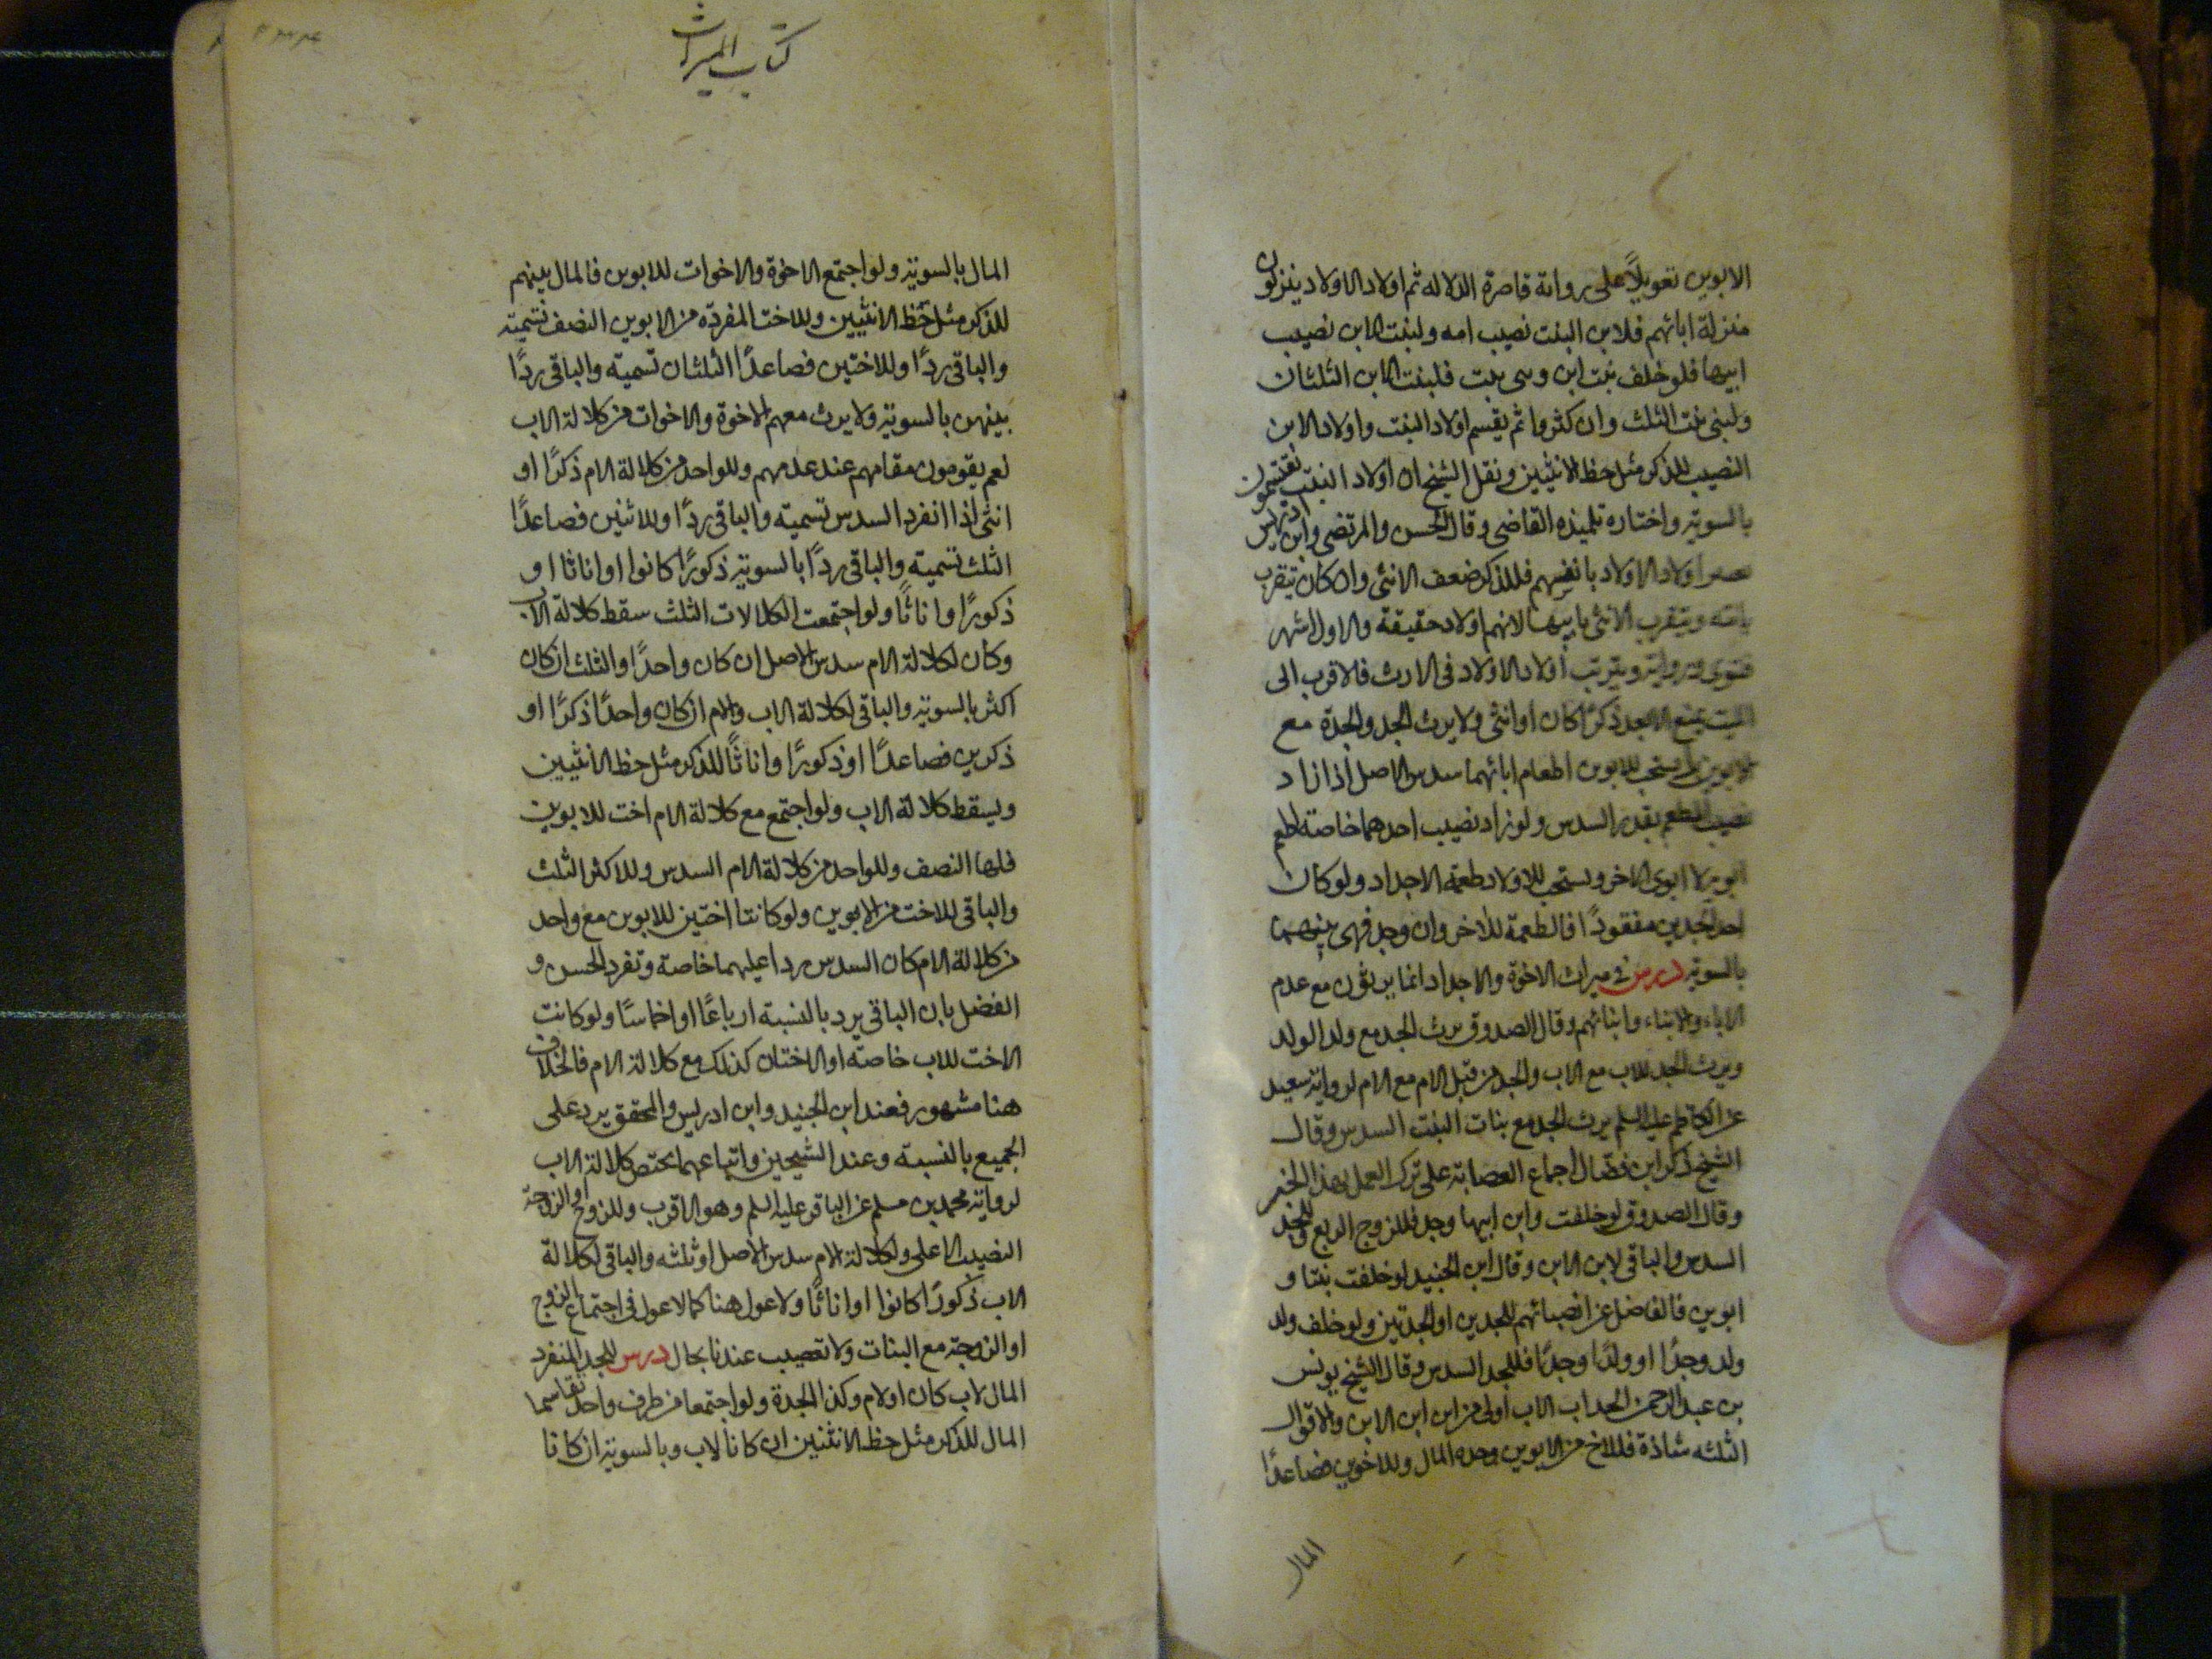 الابوين تعويلاً على رواية قاصرة الدلاله ثم اولاد الاولاد ينزلون
منزلة ابائهم فلابن البنت نصيب امه ولبنت الابن نصيب
ابيها فلو خلف بنت ابن وبنى بنت فلبنت الابن الثلثان
ولبنى بنت الثلث وان كثروا ثم يقسم اولاد البنت واولاد الابن
النصيب للذكر مثل حظ الانثيين ونقل الشيخ ان اولاد البنت يقتسمون
بالسوية واختاره تلميذه القاضى وقال الحسن والمرتضى وابن ادريس
اولاد الاولاد بانفسهم فللذكر ضعف الانثى وان كان يتقرب
بامه ويتقرب الانثى بابيها لانهم اولاد حقيقة والاول اشهر
فتوى ورواية ويترتب اولاد الاولاد فى الارث فالاقرب الى
الميت يمنع الابعد ذكرًا كان او انثى ولا يرث الجد والجدة مع
الابوين بل يستحب للابوين اطعام ابائهما سدس الاصل اذا زاد
نصيب المطعم بقدر السدس ولو زاد نصيب احدهما خاصته اطعم
ابويه لا ابوى الاخر ويستحب للاولاد طعمة الاجداد ولو كان
احد الجدين مفقودًا فالطعمة للاخر وان وجد فهى بينهما
بالسوية درس فى ميراث الاخوة والاجداد انما يرثون مع عدم
الاباء والابناء وابنائهم وقال الصدوق يرث الجد مع ولد الولد
ويرث الجد للاب مع الاب والجد من قبل الام مع الام لرواية سعيد
عن الكاظم عليه السلم يرث الجد مع بنات البنت السدس وقال
الشيخ ذكر ابن فضال اجماع العصابة على ترك العمل بهذا الخبر
وقال الصدوق لو خلفت وابن ابيها وجد فللزوج الربع وللجد
السدس والباقى لابن الابن وقال ابن الجنيد لو خلفت بنتا و
ابوين فالفاضل عن انصبائهم للجدين او الجدتين ولو خلف ولد
ولد وجدًا او ولدًا وجدًا فللجد السدس وقال الشيخ يونس
بن عبد الرحمن الجد اب الاب اولى من ابن ابن الابن والاقوال
الثلثه شاذة فللاخ من الابوين وحده المال وللاخوين فصاعدًا
المال
كتاب الميراث
المال بالسوية ولو اجتمع الاخوة والاخوات للابوين فالمال بينهم
للذكر مثل حظ الانثيين وللاخت المفردة من الابوين النصف تسمية
والباقى ردًا وللاختين فصاعدًا الثلثان تسمية والباقى ردًا
بينهن بالسوية ولا يرث معهم الاخوة والاخوات من كلالة الاب
نعم يقومون مقامهم عند عدمهم وللواحد من كلالة الام ذكرًا او
انثى اذا انفرد السدس تسمية والباقى ردًا وللاثنين فصاعدًا
الثلث تسمية والباقى ردًا بالسوية ذكورًا كانوا او اناثا او
ذكورًا واناثًا ولو اجتمعت الكلالات الثلث سقط كلالة الاب
وكان لكلالة الام سدس الاصل ان كان واحدًا والثلث ان كان
اكثر بالسوية والباقى لكلالة الاب والام ان كان واحدًا ذكرًا او
ذكرين فصاعدًا او ذكورًا واناثًا للذكر مثل حظ الانثيين
ويسقط كلالة الاب ولو اجتمع مع كلالة الام اخت للابوين
فلها النصف وللواحد من كلالة الام السدس وللاكثر الثلث
والباقى للاخت من الابوين ولو كانتا اختين للابوين مع واحد
من كلالة الام كان السدس ردا عليهما خاصة وتفرد الحسن و
الفضل بان الباقى يرد بالنسبة ارباعًا او اخماسًا ولو كانت
الاخت للاب خاصته او الاختان كذلك مع كلالة الام فالخلاف
هنا مشهور فعند ابن الجنيد وابن ادريس والمحقق يرد على
الجميع بالنسبة وعند الشيخين واتباعهما يختص كلالة الاب
لرواية محمد بن مسلم عن الباقر عليه السلم وهو الاقرب وللزوج او الزوجة
النصيب الاعلى ولكلالة الام سدس الاصل او ثلثه والباقى لكلالة
الاب ذكورًا كانوا او اناثًا ولا عول هنا كما لا عول فى اجتماع الزوج
او الزوجة مع البنات ولا تعصيب عندنا بحال درس للجد المنفرد
المال لاب كان او لام وكذا الجدة ولو اجتمعا من طرف واحد تقاسما
المال للذكر مثل حظ الانثيين ان كانا لاب وبالسوية ان كانا